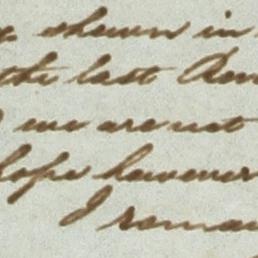 shewn in
the last
we are not
hope however
I remai